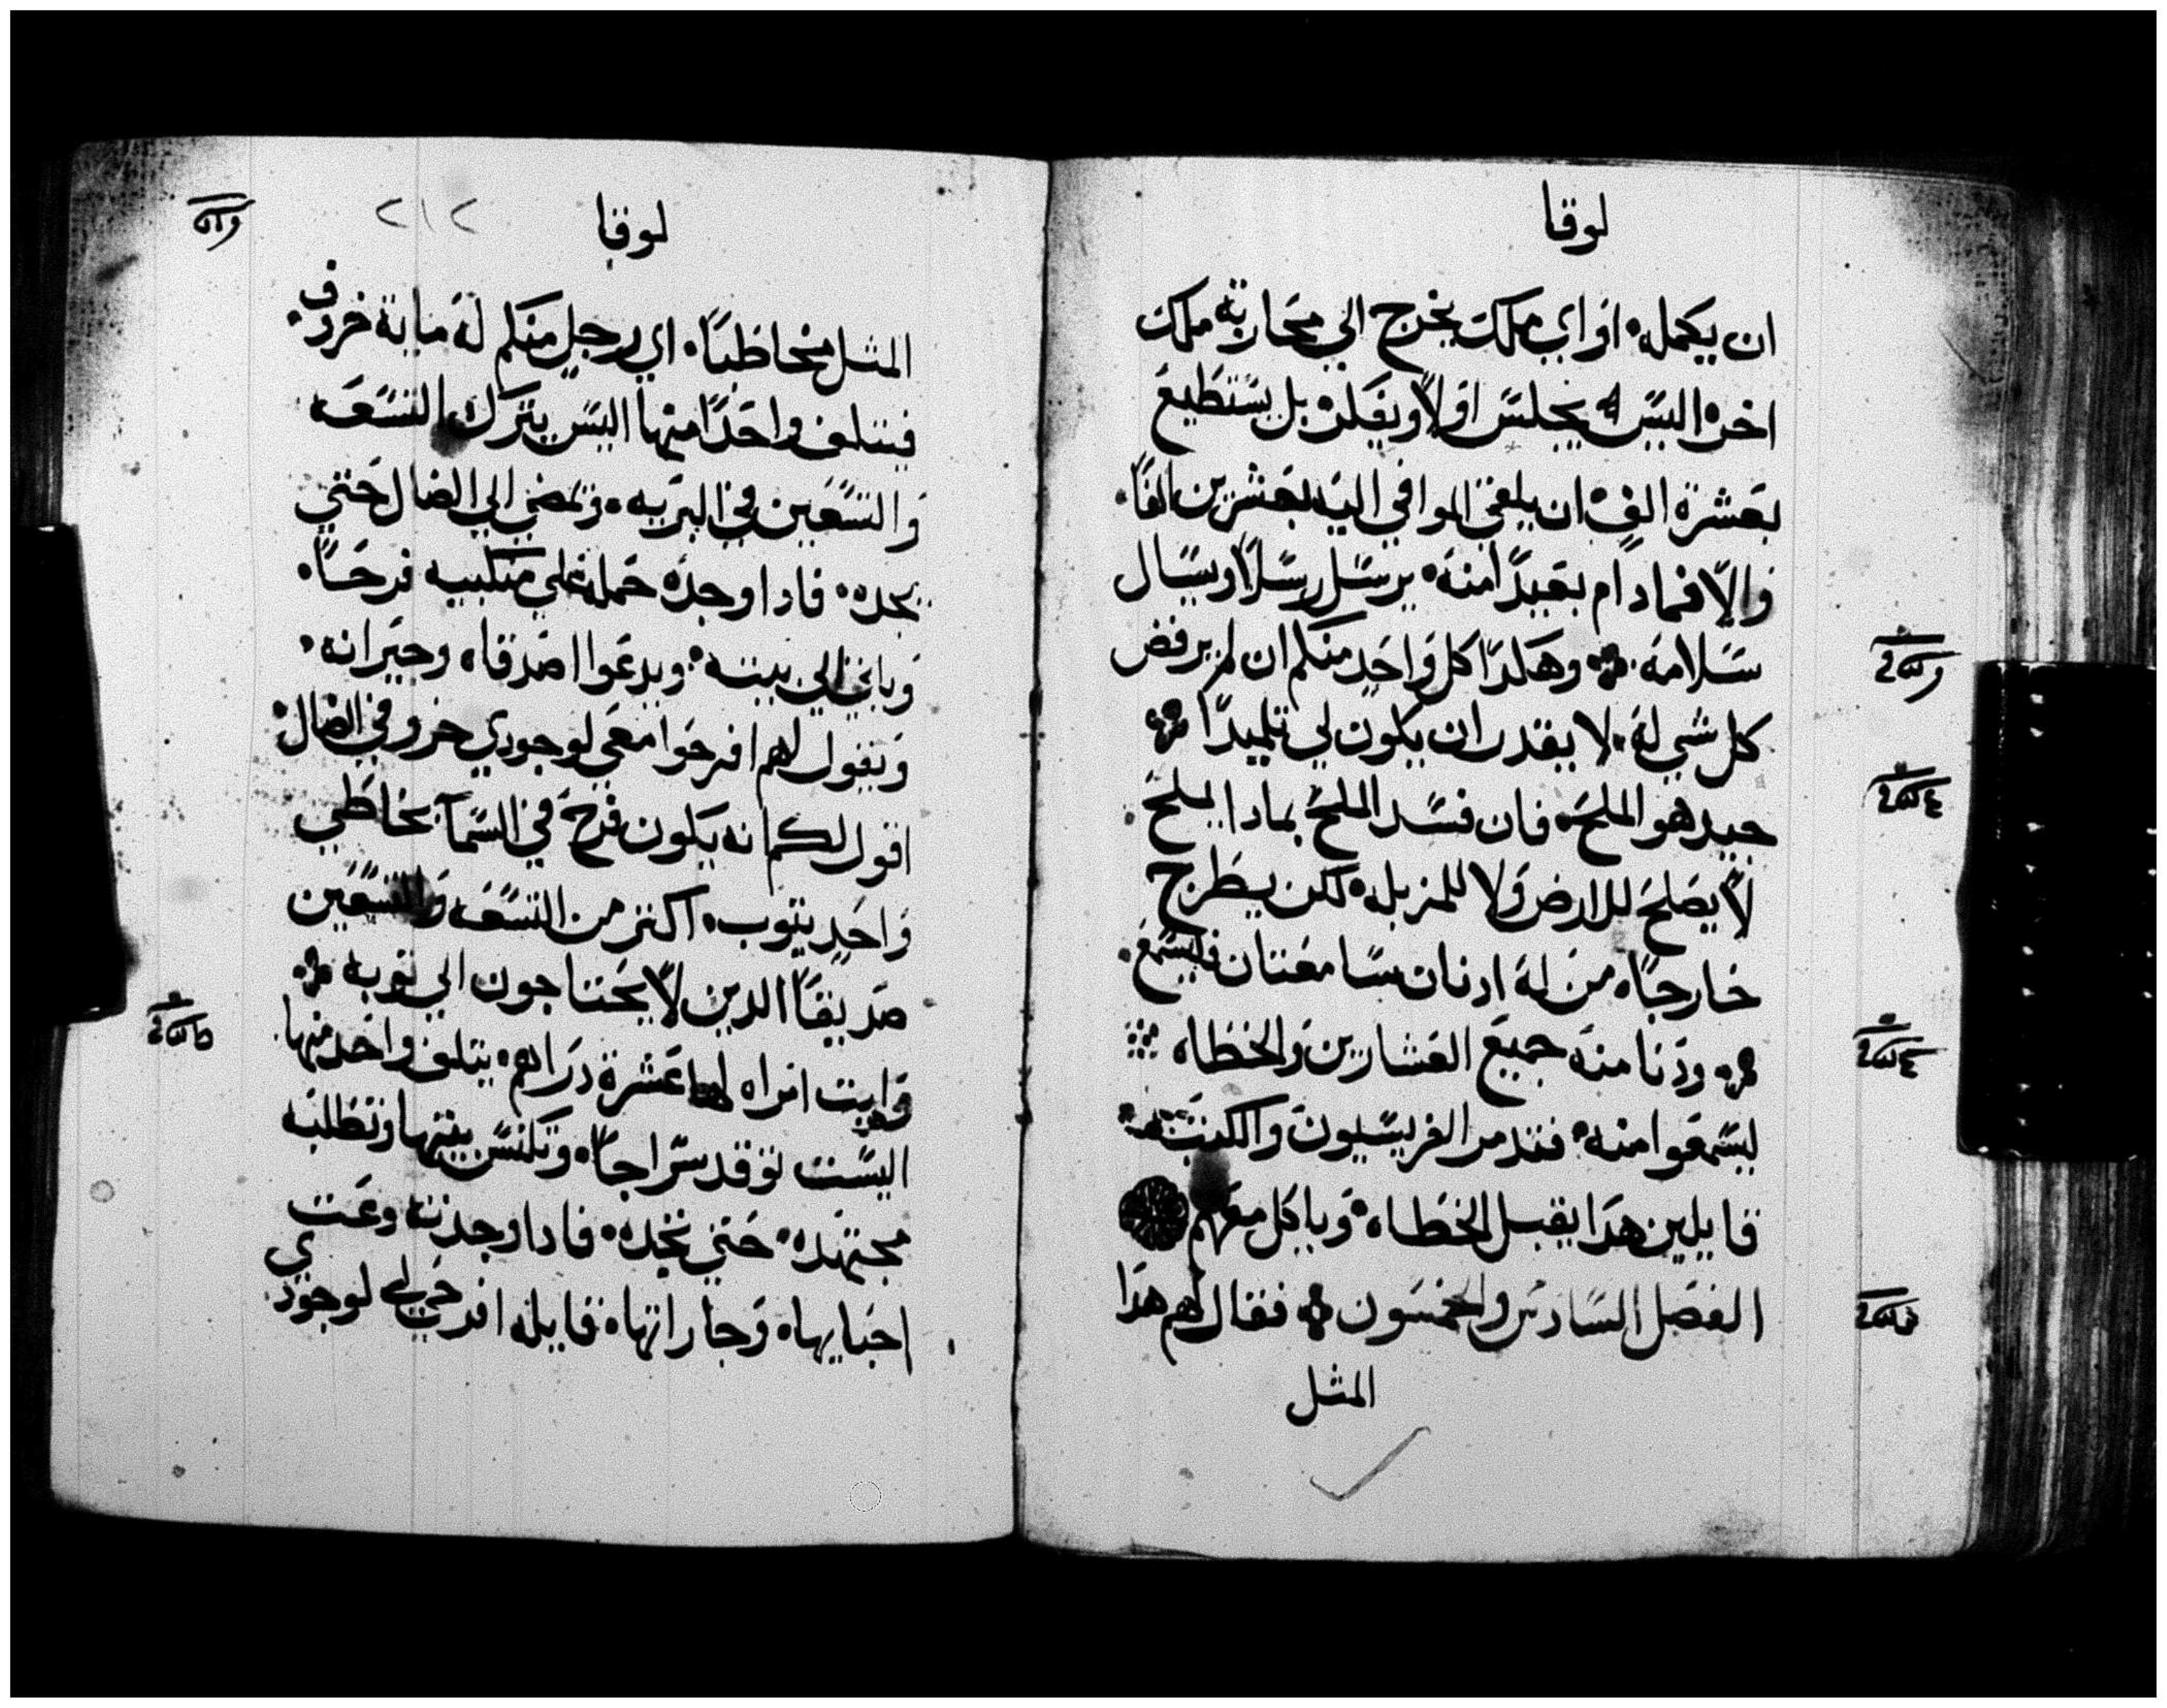 لوقا
ان يكمله او اي ملك يخرج الي محاربة ملك
اخر اليس يجلس اولاً ويفكر بل يستطيع
بعشرة الف ان يلقي الموافي اليه بعشرين الفاً
والا فمادام بعيداً منه يرسل رسلاً ويسال
سلامه وهكدا كل واحد منكم ان لم يرفض
كل شي له لا يقدر ان يكون لي تلميداً
جيد هو الملح فان فسد الملح بمادا يملح
لا يصلح للارض ولا للمزبله لكن يطرح
خارجاً من له ادنان سامعتان فليسمع
ودنا منه جميع العشارين والخطاه
ليسمعوا منه فتدمر الفريسيون والكتبه
قايلين هدا يقبل الخطاه وياكل معهم
الفصل السادس والخمسون فقال لهم هدا
المثل
لوقا
٢١٢
المثل مخاطباً اي رجل منكم له ماية خروف
فيتلف واحداً منها اليس يترك التسعه
والتسعين في البريه ويمضي الي الضال حتي
يجده فادا وجده حمله علي منكبيه فرحاً
وياتي الي بيته ويدعوا اصدقاه وجيرانه
ويقول لهم افرحوا معي لوجودي خروفي الضال
اقول لكم انه يكون فرح في السما بخاطي
واحد يتوب اكتر من التسعه والتسعين
صديقاً الدين لا يحتاجون الي توبه
وايت امراه لها عشرة دراهم يتلف واحد منها
اليست توقد سراجاً وتكنس بيتها وتطلبه
مجتهده حتي تجده فادا وجدته دعت
احبايها وجاراتها قايله افرحي لي لوجودي